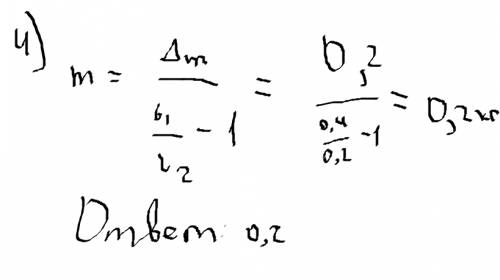 4) m = Δm / (b₁/b₂ - 1) = 0,2 / (0,4/0,2 - 1) = 0,2 кг
Ответ: 0,2